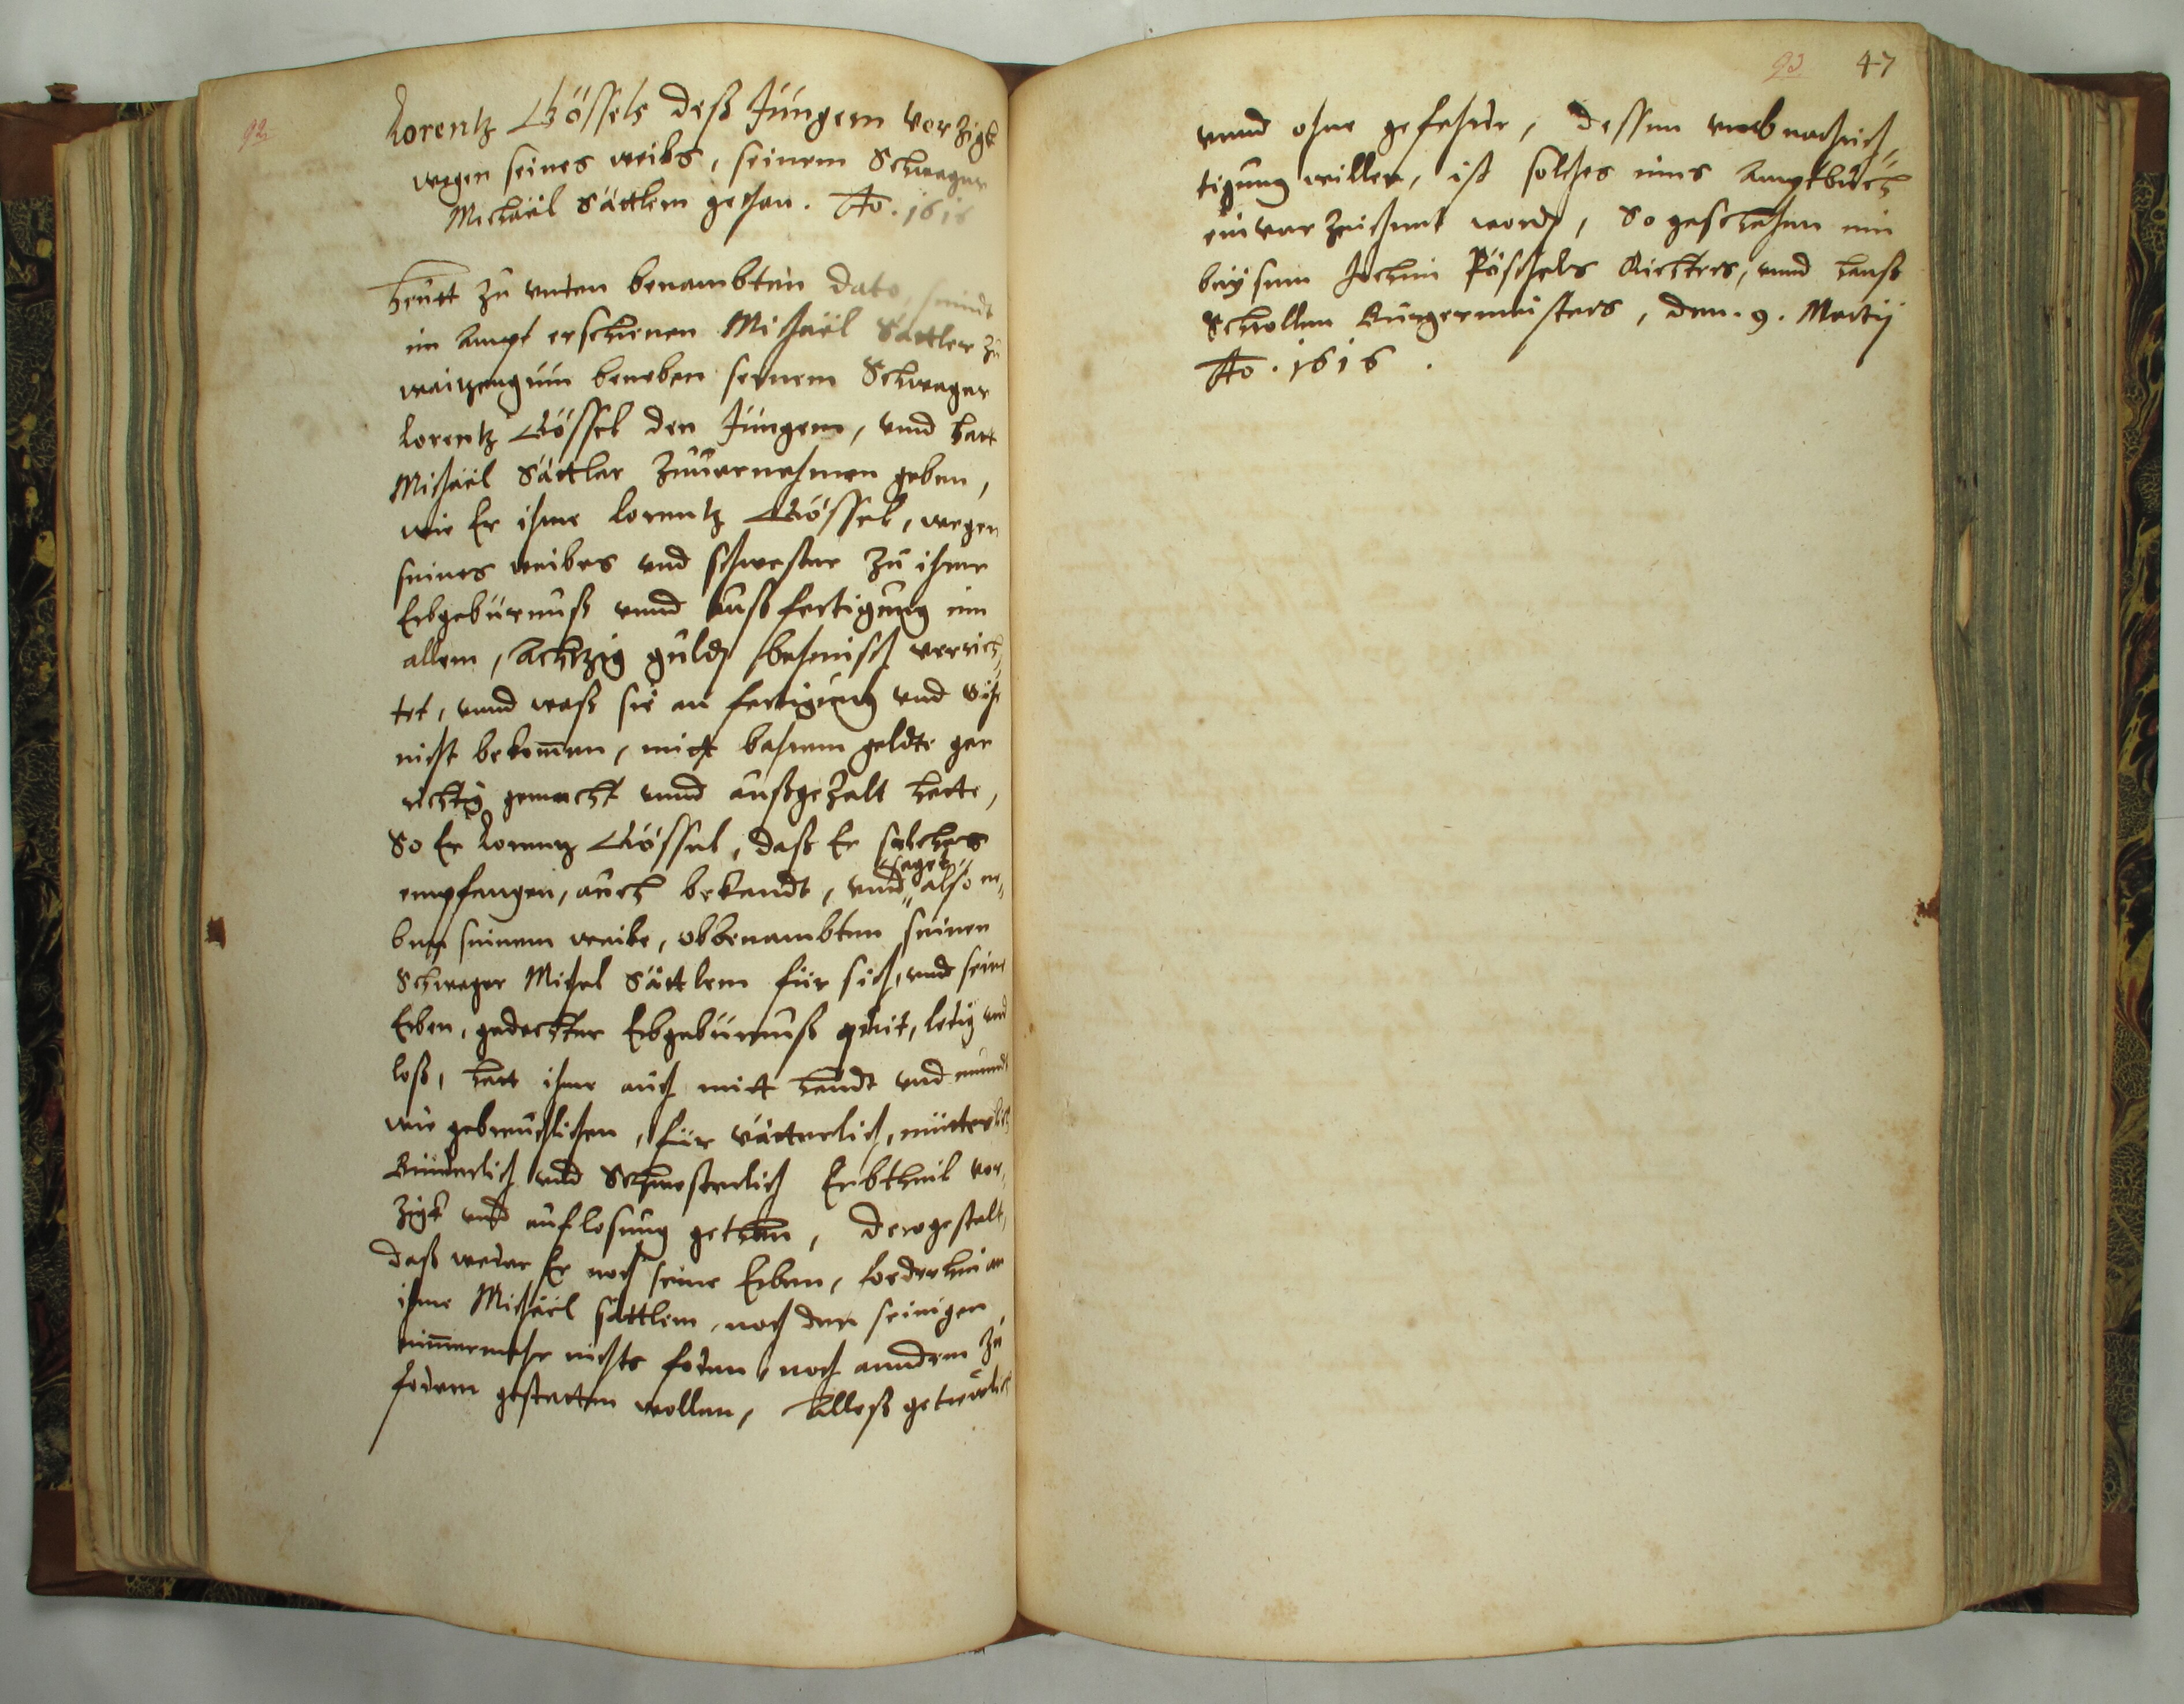 92
Lorentz Gössels deß Jüngern vorzigk
wegen seines weibs, seinem Schwager
Michäel Sättlern gethan. Ao. 1616
Heutt zu unten benambten dato, seindt
im Ampt erschienen Michäel Sättler zu
beneben seinem Schwager
Lorentz Gössel den Jüngern, vnnd hatt
Michäel Sättler zuuernehmen geben,
wie Er ihme Lorentz Gössel, wegen
seines weibes vnd schwester zu ihrer
Erbgebürnuß vnnd außfertigung inn
allem, Achtzig guldn behmisch verrich„
tet, vnnd waß sie an fertigung vnd vih
nicht bekom̄en, mitt bahrem geldte gar
richtig gemacht vnnd außgezalt hette,
So Er Lorentz Gössel, daß Er solches
empfangen, auch bekandt, vnnd saget also ne„
ben seinem weibe, obbenambten seinen
Schwager Michel Sättlern für sich, vnd seine
Erben, gedachter Erbgebürnuß quit, ledig vnd
loß, hatt ihme auch mitt handt vnd mundt
wie gebreuchlichen, für vätterlich, mütterlich
Brüderlich vnd Schwesterlich Erbtheil vor„
zigk vnd auflosung gethan, derogestalt,
daß weder Er noch seine Erben, forderhin an
ihme Michäel Sättlern, noch den seinigen
nim̄ermehr nichts fodern, noch anndern zu
fodern gestatten wollen, Alleß getreulich
93 47
vnnd ohne gefehrde, dessen vmb nachrich„
tigung willen, ist solches inns Amptbuch
einvorzeichnet wordn, So geschehen inn
beysein Pöschels Richters, vnnd Hanß
Schrollen Burgermeisters, den. 9. Martij
Ao. 1616.